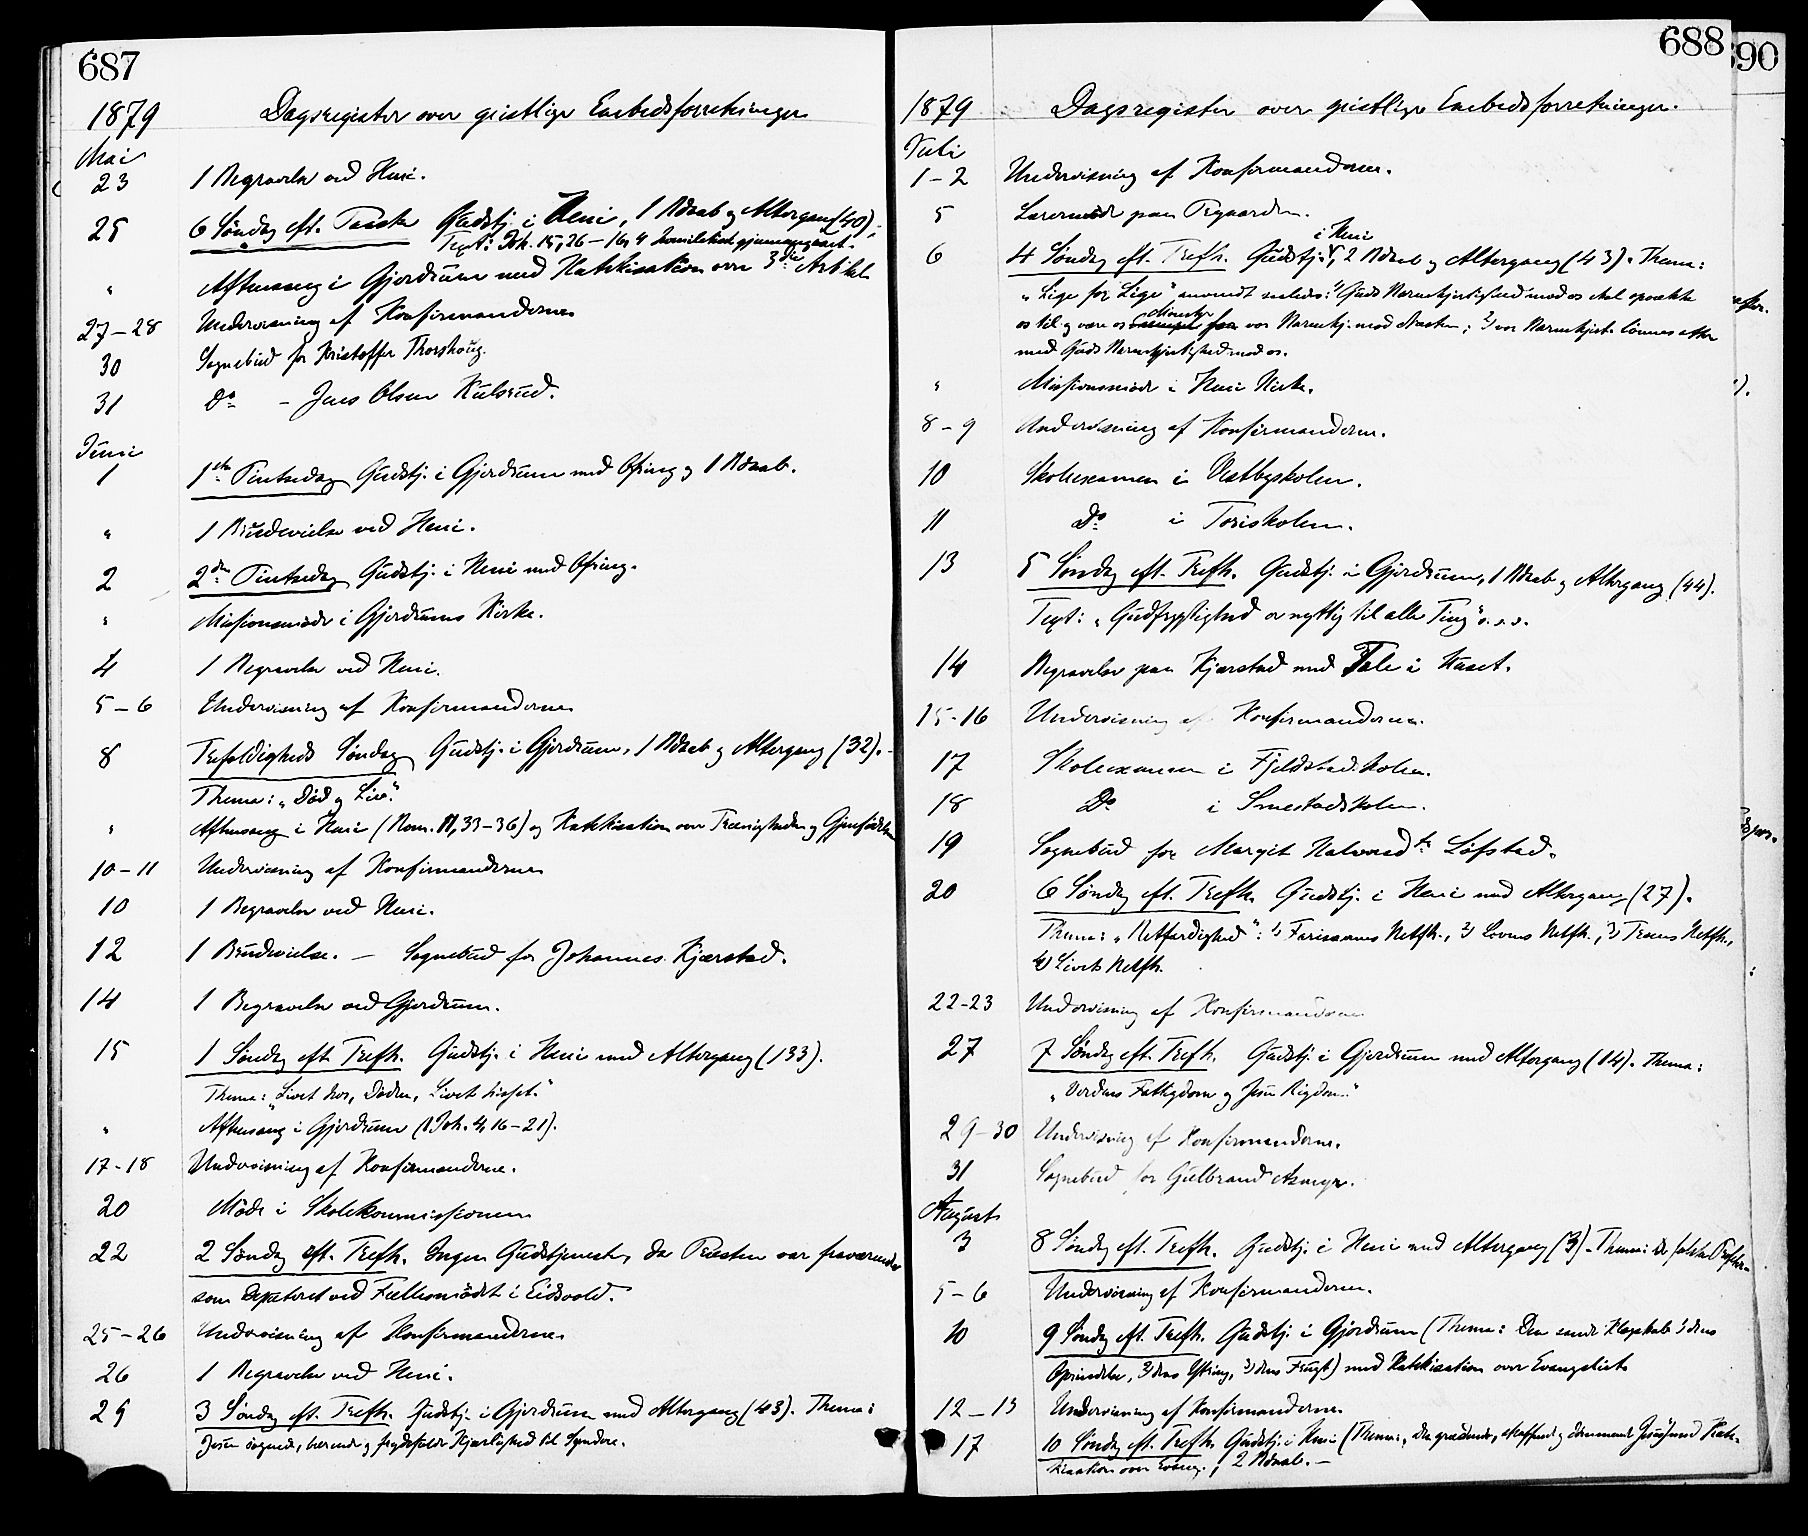 687
1879 Dagsregister over geistlige Embedsforretninger
Mai
23 1 Begravelse ved Heni.
25 6 Søndag eft. Paaske Gudstj. i Heni, 1 Udaab og Altergang (40).
Text: Joh. 15,26 – 16,4 homiletisk gjennemgaaet.
" Aftensang i Gjerdrum med Katekisation over 3die Artikel
27–28 Undervisning af Konfirmanderne
30 Sognebud for Kristoffer Thorshoug.
31 Do – Jens Olsen Kulsrud.
Juni
1 1ste Pintsedag Gudstj. i Gjerdrum med Ofring og 1 Udaab.
" 1 Brudevielse ved Heni.
2 2den Pintsedag Gudstj. i Heni med Ofring.
" Missionsmøde i Gjerdrums Kirke.
4 1 Begravelse ved Heni.
5–6 Undervisning af Konfirmanderne
8 Trefoldigheds Søndag Gudstj. i Gjerdrum, 1 Udaab og Altergang (32). –
Thema: "Død og Liv."
" Aftensang i Heni (Rom. 11, 33–36) og Katekisation over Treenigheden og Gjenfødelsen
10–11 Undervisning af Konfirmanderne
10 1 Begravelse ved Heni.
12 1 Brudevielse. – Sognebud for Johannes Kjærstad.
14 1 Begravelse ved Gjerdrum.
15 1 Søndag eft. Trefh. Gudstj. i Heni med Altergang (133).
Thema: "Livet her, Døden, Livet hisset."
" Aftensang i Gjerdrum (1 Joh. 4, 16–21).
17-18 Undervisning af Konfirmanderne.
20 Møde i Skolekommissionen
22 2 Søndag eft. Trefh. Ingen Gudstjeneste, da Præsten var fraværende
som deputeret ved Fællesmødet i Eidsvold.
25–26 Undervisning af Konfirmanderne
26 1 Begravelse ved Heni.
29 3 Søndag eft. Trefh. Gudstj. i Gjerdrum med Altergang (43). Thema:
Jesu søgende, bærende og frydefulde Kjærlighed til Syndere.
688
1879 Dagsregister over geistlige Embedsforretninger.
Juli
1–2 Undervisning af Konfirmanderne.
5 Lærermøde paa Prgaarden.
i Heni
6 4 Søndag eft. Trefh. Gudstj., 2 Udaab og Altergang (43). Thema:
"Lige for Lige" anvendt saaledes: 1) Guds Barmhjertighed mod os skal opvække
os til og være os Mønster for vor Barmhj. mod Næsten; 2) vor Barmhjert. lønnes atter
med Guds Barmhjertighed mod os.
" Missionsmøde i Heni Kirke.
8–9 Undervisning af Konfirmanderne.
10 Skoleexamen i Vestbyskolen.
11 Do i Toriskolen.
13 5 Søndag eft. Trefh. Gudstj. i Gjerdrum, 1 Udaab og Altergang (44).
Text: "Gudfrygtighed er nyttig til alle Ting" o.s.v.
14 Begravelse paa Kjærstad med Tale i Huset.
15-16 Undervisning af Konfirmanderne.
17 Skoleexamen i Fjeldstadskolen.
18 Do i Smestadskolen.
19 Sognebud for Margit Halvorsdtr Løfstad.
20 6 Søndag eft. Trefh. Gudstj. i Heni med Altergang (27).
Thema: "Retfærdighed": 1) Farisæernes Retfh., 2) Lovens Retfh., 3) Troens Retfh.,
4) Livets Retfh.
22-23 Undervisning af Konfirmanderne
27 7 Søndag eft. Trefh. Gudstj. i Gjerdrum med Altergang (14). Thema:
"Verdens Fattigdom og Jesu Rigdom."
29–30 Undervisning af Konfirmanderne.
31 Sognebud for Gulbrand Asmyr.
August
3 8 Søndag eft. Trefh. Gudstj. i Heni med Altergang (3). Thema: De falske Profeter
5–6 Undervisning af Konfirmanderne.
10 9 Søndag eft. Trefh. Gudstj. i Gjerdrum (Thema: Den sande Klogskab 1) dens
Oprindelse, 2) dens Ytring, 3) dens Frugt) med Katekisation over Evangeliet
12–13 Undervisning af Konfirmanderne.
17 10 Søndag eft. Trefh. Gudstj. i Heni (Thema: "Den grædende, straffende og dømmende Jesus") med Kate-
kisation over Evang., 2 Udaab. –
690